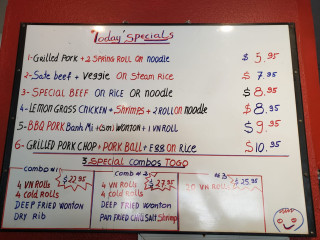 "Today' Specials
1-Grilled PORK + 2 SPRING ROLL ON noodle $ 5.95
2-Sate beef + veggie ON Steam Rice $ 7.95
3-SPECIAL BEEF ON RICE OR noodle $ 8.95
4-LEMON GRASS CHICKEN + Shrimps + 2 ROLL ON noodle $ 8.95
5-BBQ PORK Banh Mi + (sm) WONTON + 1 VN ROLL $ 9.95
6-GRILLED PORK CHOP + PORK BALL + EGG ON RICE $ 10.95
3 Special Combos TOGO
Combo #1
4 VN ROLLS $22.95
4 Cold ROLLS
DEEP FRIED WONTON
DRY RIB
Comb #2
4 VN ROLLS $27.95
4 Cold ROLLS
DEEP FRIED WONTON
PAN FRIED CHILI SALT Shrimp
#3
20 VN ROLLS $25.95